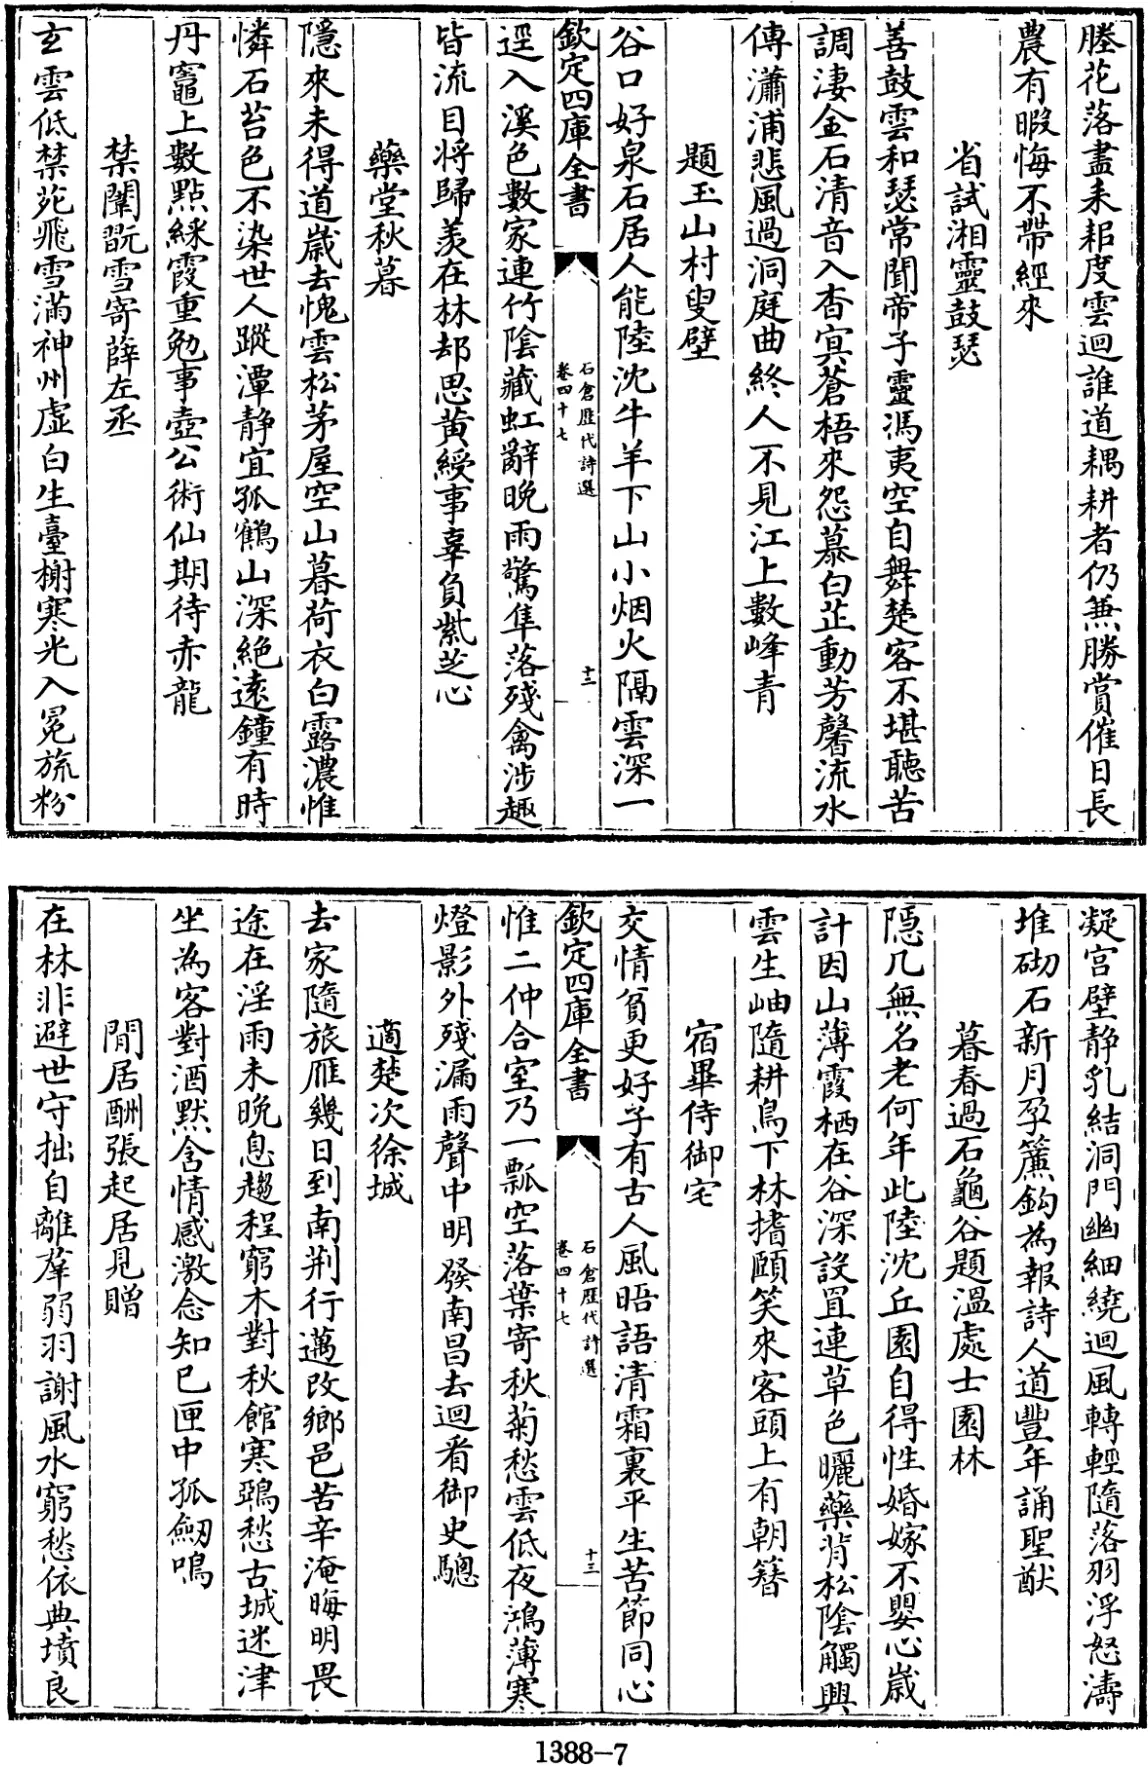 塍花落盡耒耜度雲迴誰道耦耕者仍兼勝賞催日長
農有暇悔不帶經來
省試湘靈鼓瑟
善鼓雲和瑟常聞帝子靈馮夷空自舞楚客不堪聽苦
調淒金石清音入杳冥蒼梧來怨慕白芷動芳馨流水
傳瀟浦悲風過洞庭曲終人不見江上數峰青
題玉山村叟壁
谷口好泉石居人能陸沈牛羊下山小烟火隔雲深一
欽定四庫全書
石倉歷代詩選
卷四十七
十二
逕入溪色數家連竹陰藏虹辭晚雨驚隼落殘禽涉趣
皆流目將歸羨在林却思黃綬事辜負紫芝心
藥堂秋暮
隱來未得道歲去愧雲松茅屋空山暮荷衣白露濃惟
憐石苔色不染世人蹤潭静宜孤鶴山深絶遠鐘有時
丹竈上數點綵霞重勉事壺公術仙期待赤龍
禁闈翫雪寄薛左丞
玄雲低禁苑飛雪滿神州虛白生臺榭寒光入冕旒粉
凝宫壁静乳結洞門幽細繞迴風轉輕隨落羽浮怒濤
堆砌石新月孕簾鈎為報詩人道豐年誦聖猷
暮春過石龜谷題溫處士園林
隱几無名老何年此陸沈丘園自得性婚嫁不嬰心歲
計因山薄霞栖在谷深設罝連草色曬藥背松陰觸興
雲生岫隨耕鳥下林搘頤笑來客頭上有朝簪
宿畢侍御宅
交情貧更好子有古人風晤語清霜裏平生苦節同心
欽定四庫全書
石倉歷代詩選
卷四十七
十三
惟二仲合室乃一瓢空落葉寄秋菊愁雲低夜鴻薄寒
燈影外殘漏雨聲中明發南昌去迴看御史驄
適楚次徐城
去家隨旅雁幾日到南荆行邁改鄉邑苦辛淹晦明畏
途在淫雨未晚息趨程窮木對秋館寒鴉愁古城迷津
坐為客對酒默含情感激念知己匣中孤劒鳴
閒居酬張起居見贈
在林非避世守拙自離羣弱羽謝風水窮愁依典墳良
1388-7